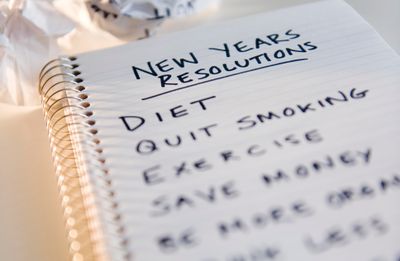 NEW YEARS
RESOLUTIONS
DIET
QUIT SMOKING
EXERCISE
SAVE MONEY
BE MORE ORGAN
LESS